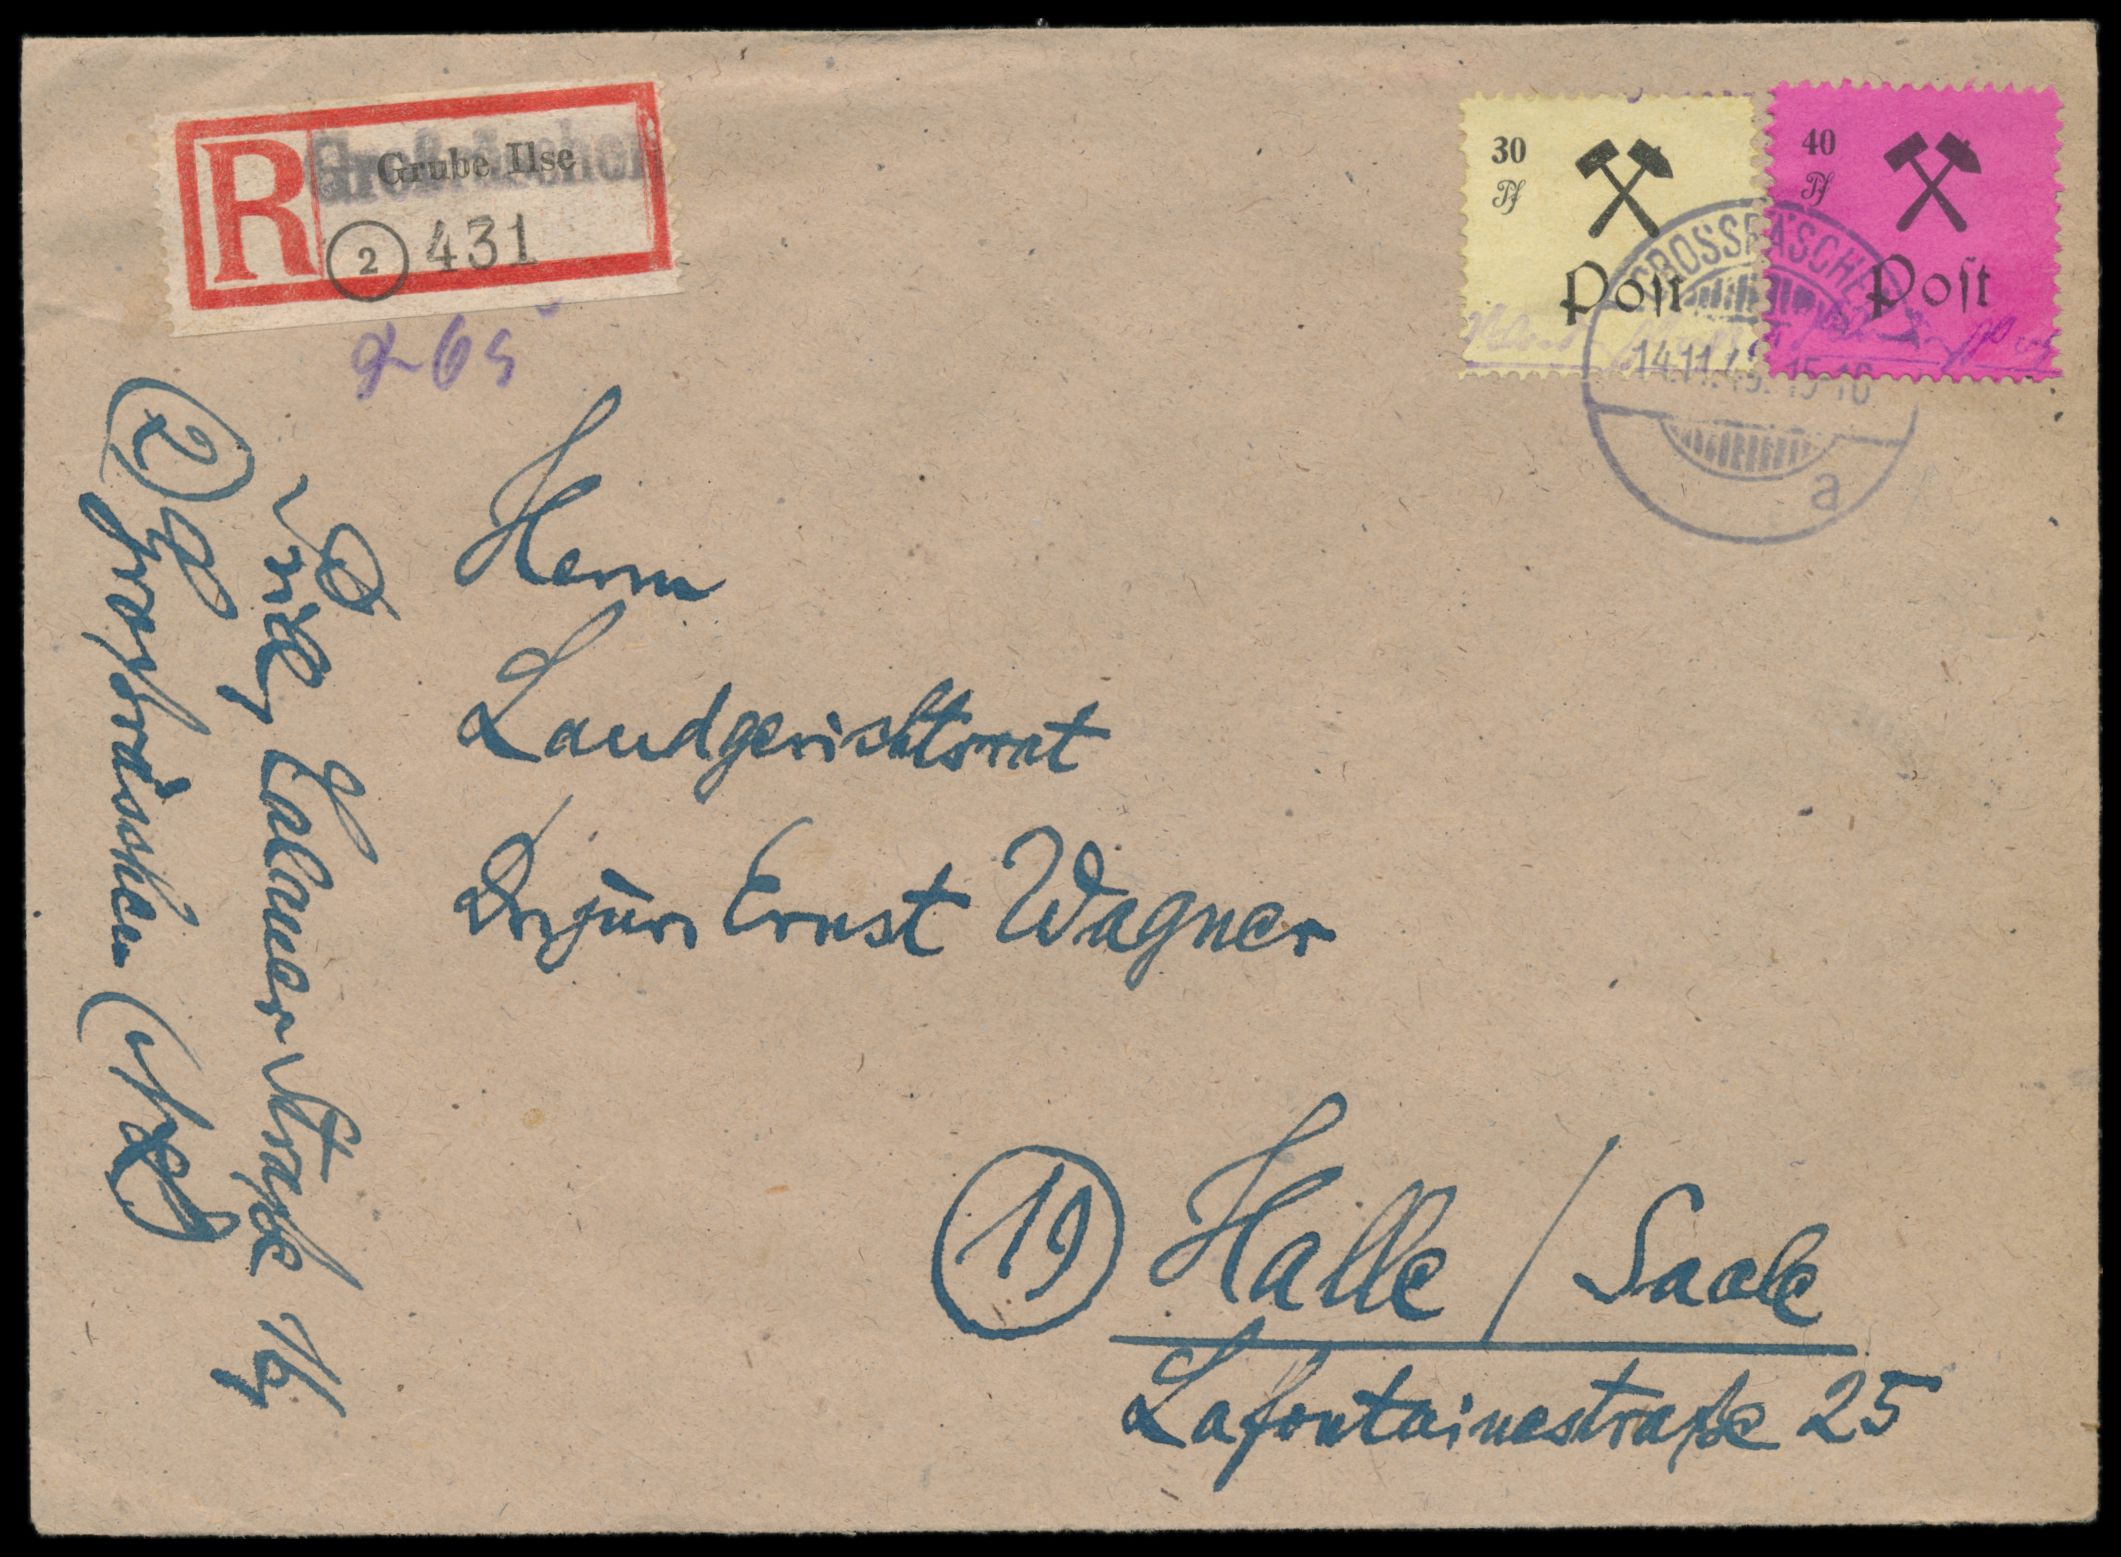 R
Großräschen
Grube Ilse
2 431
30
Pf
Post
40
Pf
Post
GROSSRÄSCHEN
14.11.45. 15-16
a
Herrn
Landgerichtsrat
Dr. jur. Ernst Wagner
19 Halle / Saale
Lafontainestraße 25
Calauer Straße
2 Großräschen (NL)